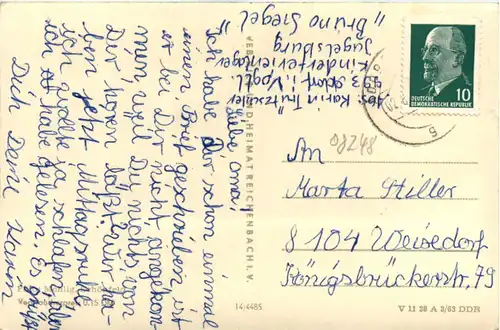 Abs. Karin Tritzschler
993 Adorf i. Vogtl.
Kinderferienlager
Jugelsburg
"Bruno Siegel"
Liebe Oma!
Ich habe Dir schon einmal
einen Brief geschrieben, ist
er bei Dir nicht angekom
men, weil Du nichts von
Dir hören läßt? Wir ha-
ben jetzt Mittagsruhe
ich wollte ja schlafen aber
ich habe gelesen. Es grüßt
Dich Deine Karin
VEB BILD HEIMAT REICHENBACH I. V.
14/4485
DEUTSCHE
DEMOKRATISCHE REPUBLIK
10
08248
An
Marta Stiller
8104 Weixdorf
Königsbrückerstr. 79
V 11 28 A 3/63 DDR